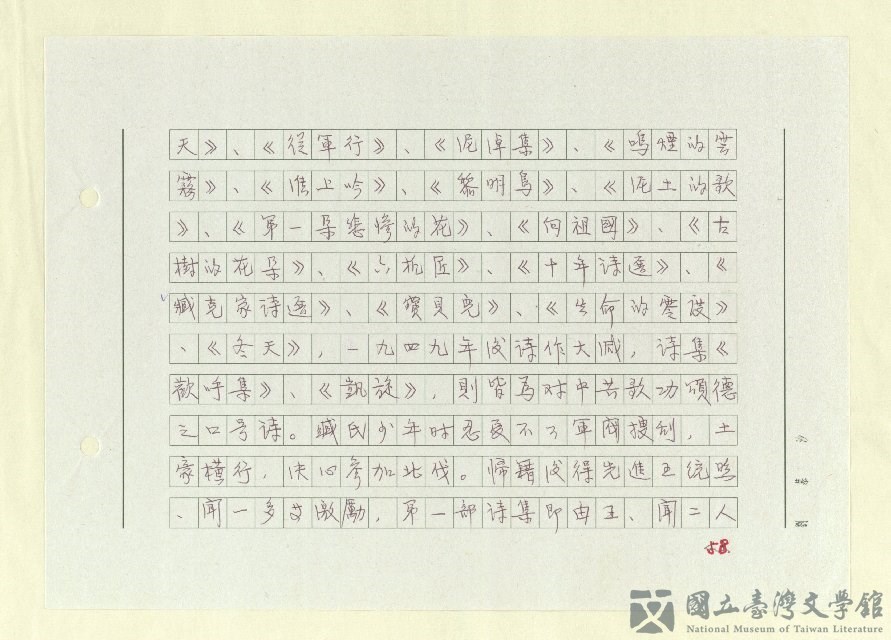 天》、《從軍行》、《泥淖集》、《嗚煙的雲
霧》、《淮上吟》、《黎明鳥》、《泥土的歌
》、《第一朵悲慘的花》、《向祖國》、《古
樹的花朵》、《六机匠》、《十年诗选》、《
臧克家诗选》、《寶貝兒》、《生命的零度》
、《冬天》，一九四九年後诗作大减，诗集《
歡呼集》、《凱旋》，則皆為对中共歌功頌德
之口号诗。臧氏少年时忍受不了軍閥搜刮，土
豪横行，决心參加北伐。歸籍後得先進王统照
、聞一多文激勵，第一部诗集即由王、聞二人
58.
國立臺灣文學館
National Museum of Taiwan Literature